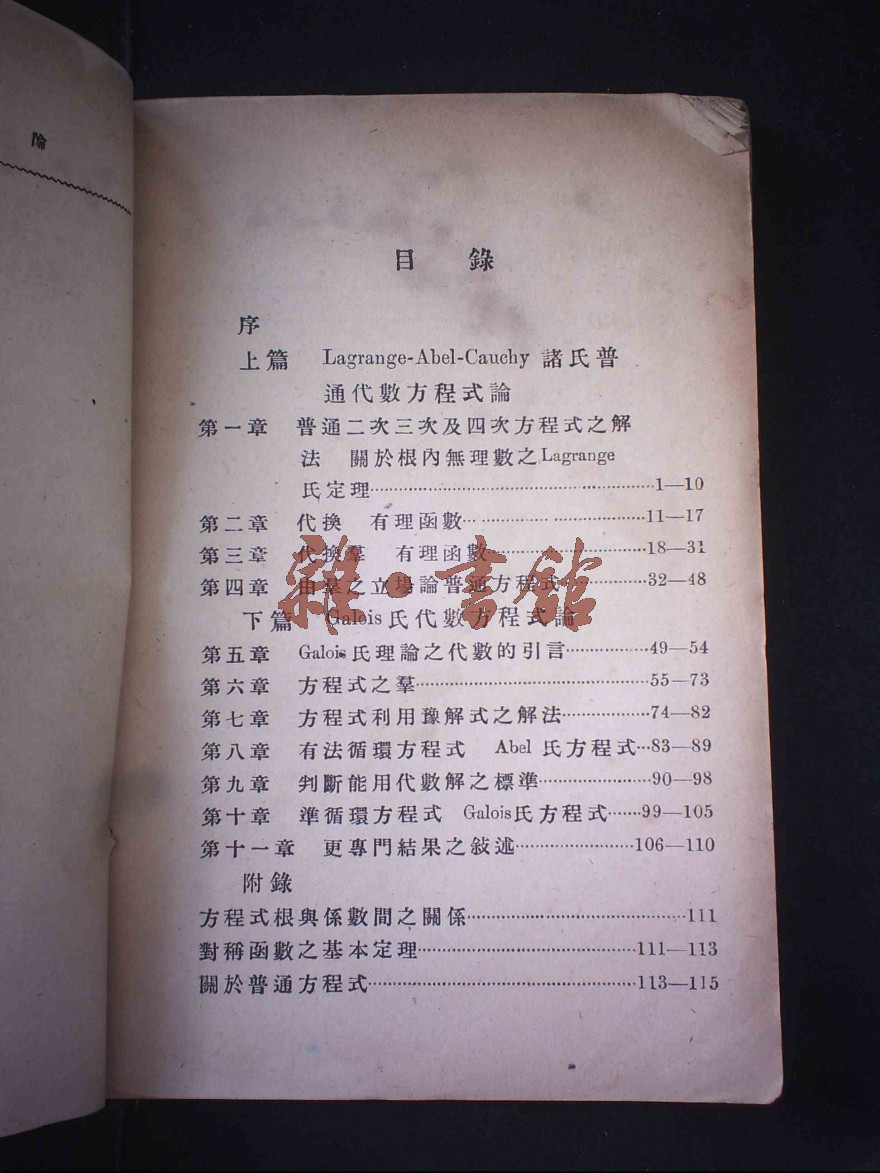 目 錄
序
上篇 Lagrange-Abel-Cauchy 諸氏普
通代數方程式論
第一章 普通二次三次及四次方程式之解
法 關於根內無理數之Lagrange
氏定理………1—10
第二章 代換 有理函數………11—17
第三章 代換羣 有理函數………18—31
第四章 由羣之立場論普通方程式………32—48
下篇 Galois氏代數方程式論
第五章 Galois氏理論之代數的引言………49—54
第六章 方程式之羣………55—73
第七章 方程式利用豫解式之解法………74—82
第八章 有法循環方程式 Abel 氏方程式…83—89
第九章 判斷能用代數解之標準………90—98
第十章 準循環方程式 Galois氏方程式……99—105
第十一章 更專門結果之敍述………106—110
附錄
方程式根與係數間之關係………111
對稱函數之基本定理………111—113
關於普通方程式………113—115
雜·書館